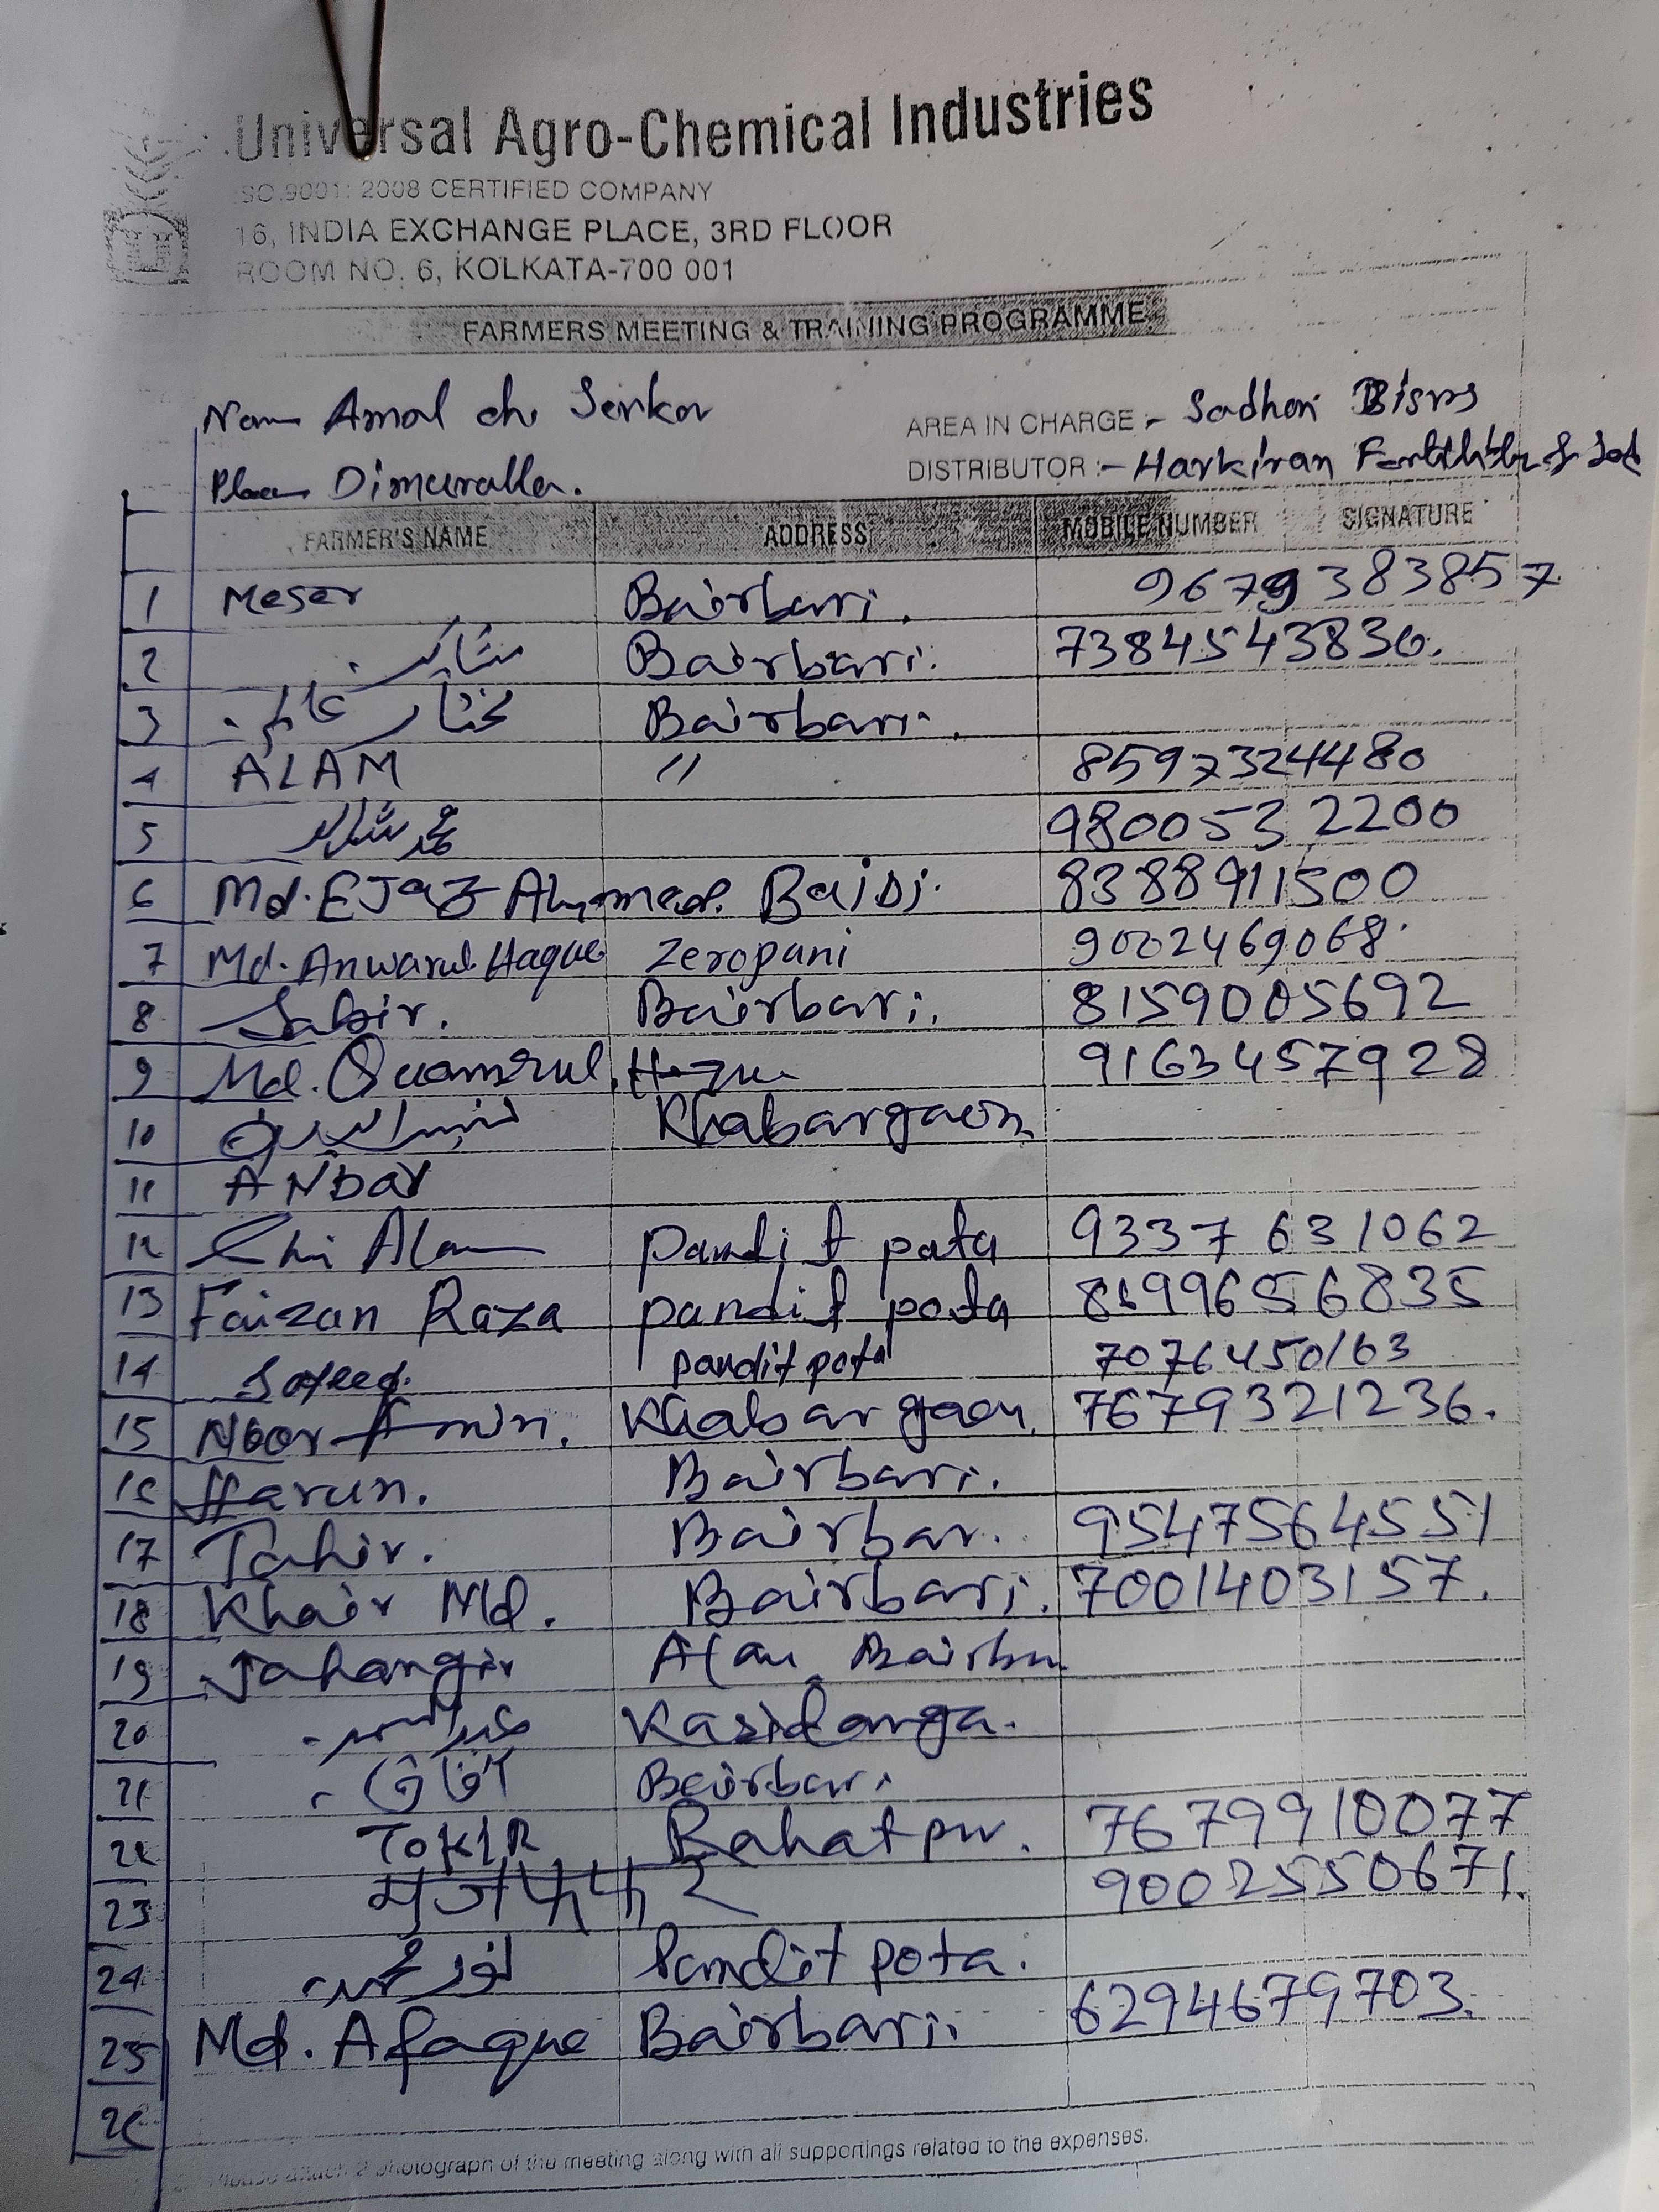 Universal Agro-Chemical Industries
ISO.9001: 2008 CERTIFIED COMPANY
16, INDIA EXCHANGE PLACE, 3RD FLOOR
ROOM NO. 6, KOLKATA-700 001
FARMERS MEETING & TRAINING PROGRAMME
Name Amal ch. Serkar AREA IN CHARGE :- Sadhan
Place DISTRIBUTOR :- Harkiran
FARMER'S NAME ADDRESS MOBILE NUMBER SIGNATURE
1 Meser Bairbari. 9679383857
2 Bairbari. 7384543836.
3 مختار عالم Bairbari.
4 ALAM " 8597324480
5 محمد شاہد 9800532200
6 Md. EJAZ Ahmmed. Baisi. 8388911500
7 Md. Anwarul Haque Zeropani 9002469068.
8 Sabir. Bairbari. 8159005692
9 Md. Quamrul. Haque 9163457928
10 Khabargaon
11 ANbar
12 Alam pandit pota 9337631062
13 Faizan Raza pandit pota
14 Sayeed. pandit pota 7076450163
15 Noor Amin. Khabargaon. 7679321236.
16 Harun. Bairbari.
17 Tahir. Bairbar. 9547564551
18 Khair Md. Bairbari. 7001403157.
19 Jahangir Alam
20 Kasidanga.
21 آفاق Bairbari
22 TOKIR Rahatpur. 7679910077
23 मुजफ्फार 9002550671.
24 نور محمد Pandit pota.
25 Md. Afaque Bairbari. 6294679703.
26
Please attach 2 photograph of the meeting along with all supportings related to the expenses.